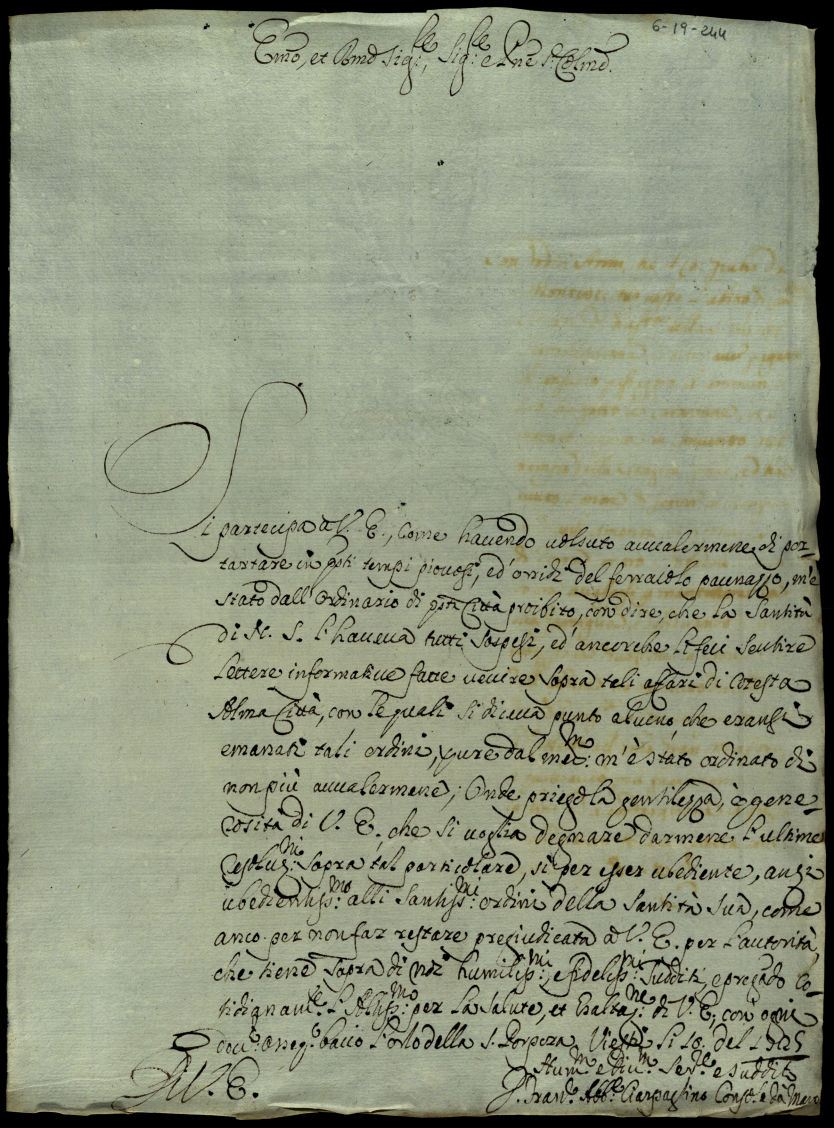 6-19-244
Emo, et Rmo Sig:re, Sig:re e Pne Colmo.
Si partecipa a V. E., come havendo volsuto avvalermene di por-
tartare in qsti tempi piovosi, ed'orridi del ferraiolo paunazzo, m'è
stato dall'Ordinario di qsta Città proibito, con dire, che la Santità
di N. S. l'haveva tutti sospesi, ed'ancorche li feci sentire
lettere informative fatte venire sopra tali affari di cotesta
Alma Città, con le quali si diceva punto alveno che eransi
emanati tali ordini, pure dal med:mo m'è stato ordinato di
non più avvalermene; Onde priego la gentilezza, e gene-
rosità di V. E. che si voglia degnare darmene l'ultime
resoluz:ni sopra tal particolare, sì per esser ubediente, anzi
ubedientiss:mo alli Santiss:mi ordini della Santità Sua, come
anco per non far restare pregiudicata a V. E. per l'autorità,
che tiene sopra di noi humiliss:mi, e fideliss:mi sudditi, e pregando co-
tidianam:te l'Altiss:mo per la salute, et Esaltaz:ne di V. E, con ogni
dov:o oseq:o bacio l'orlo della S. Porpora Viesti li 10. del 1725
Di V. E.
Hum:mo e Div:mo Ser:re e suddito
Fran:co Abb:e